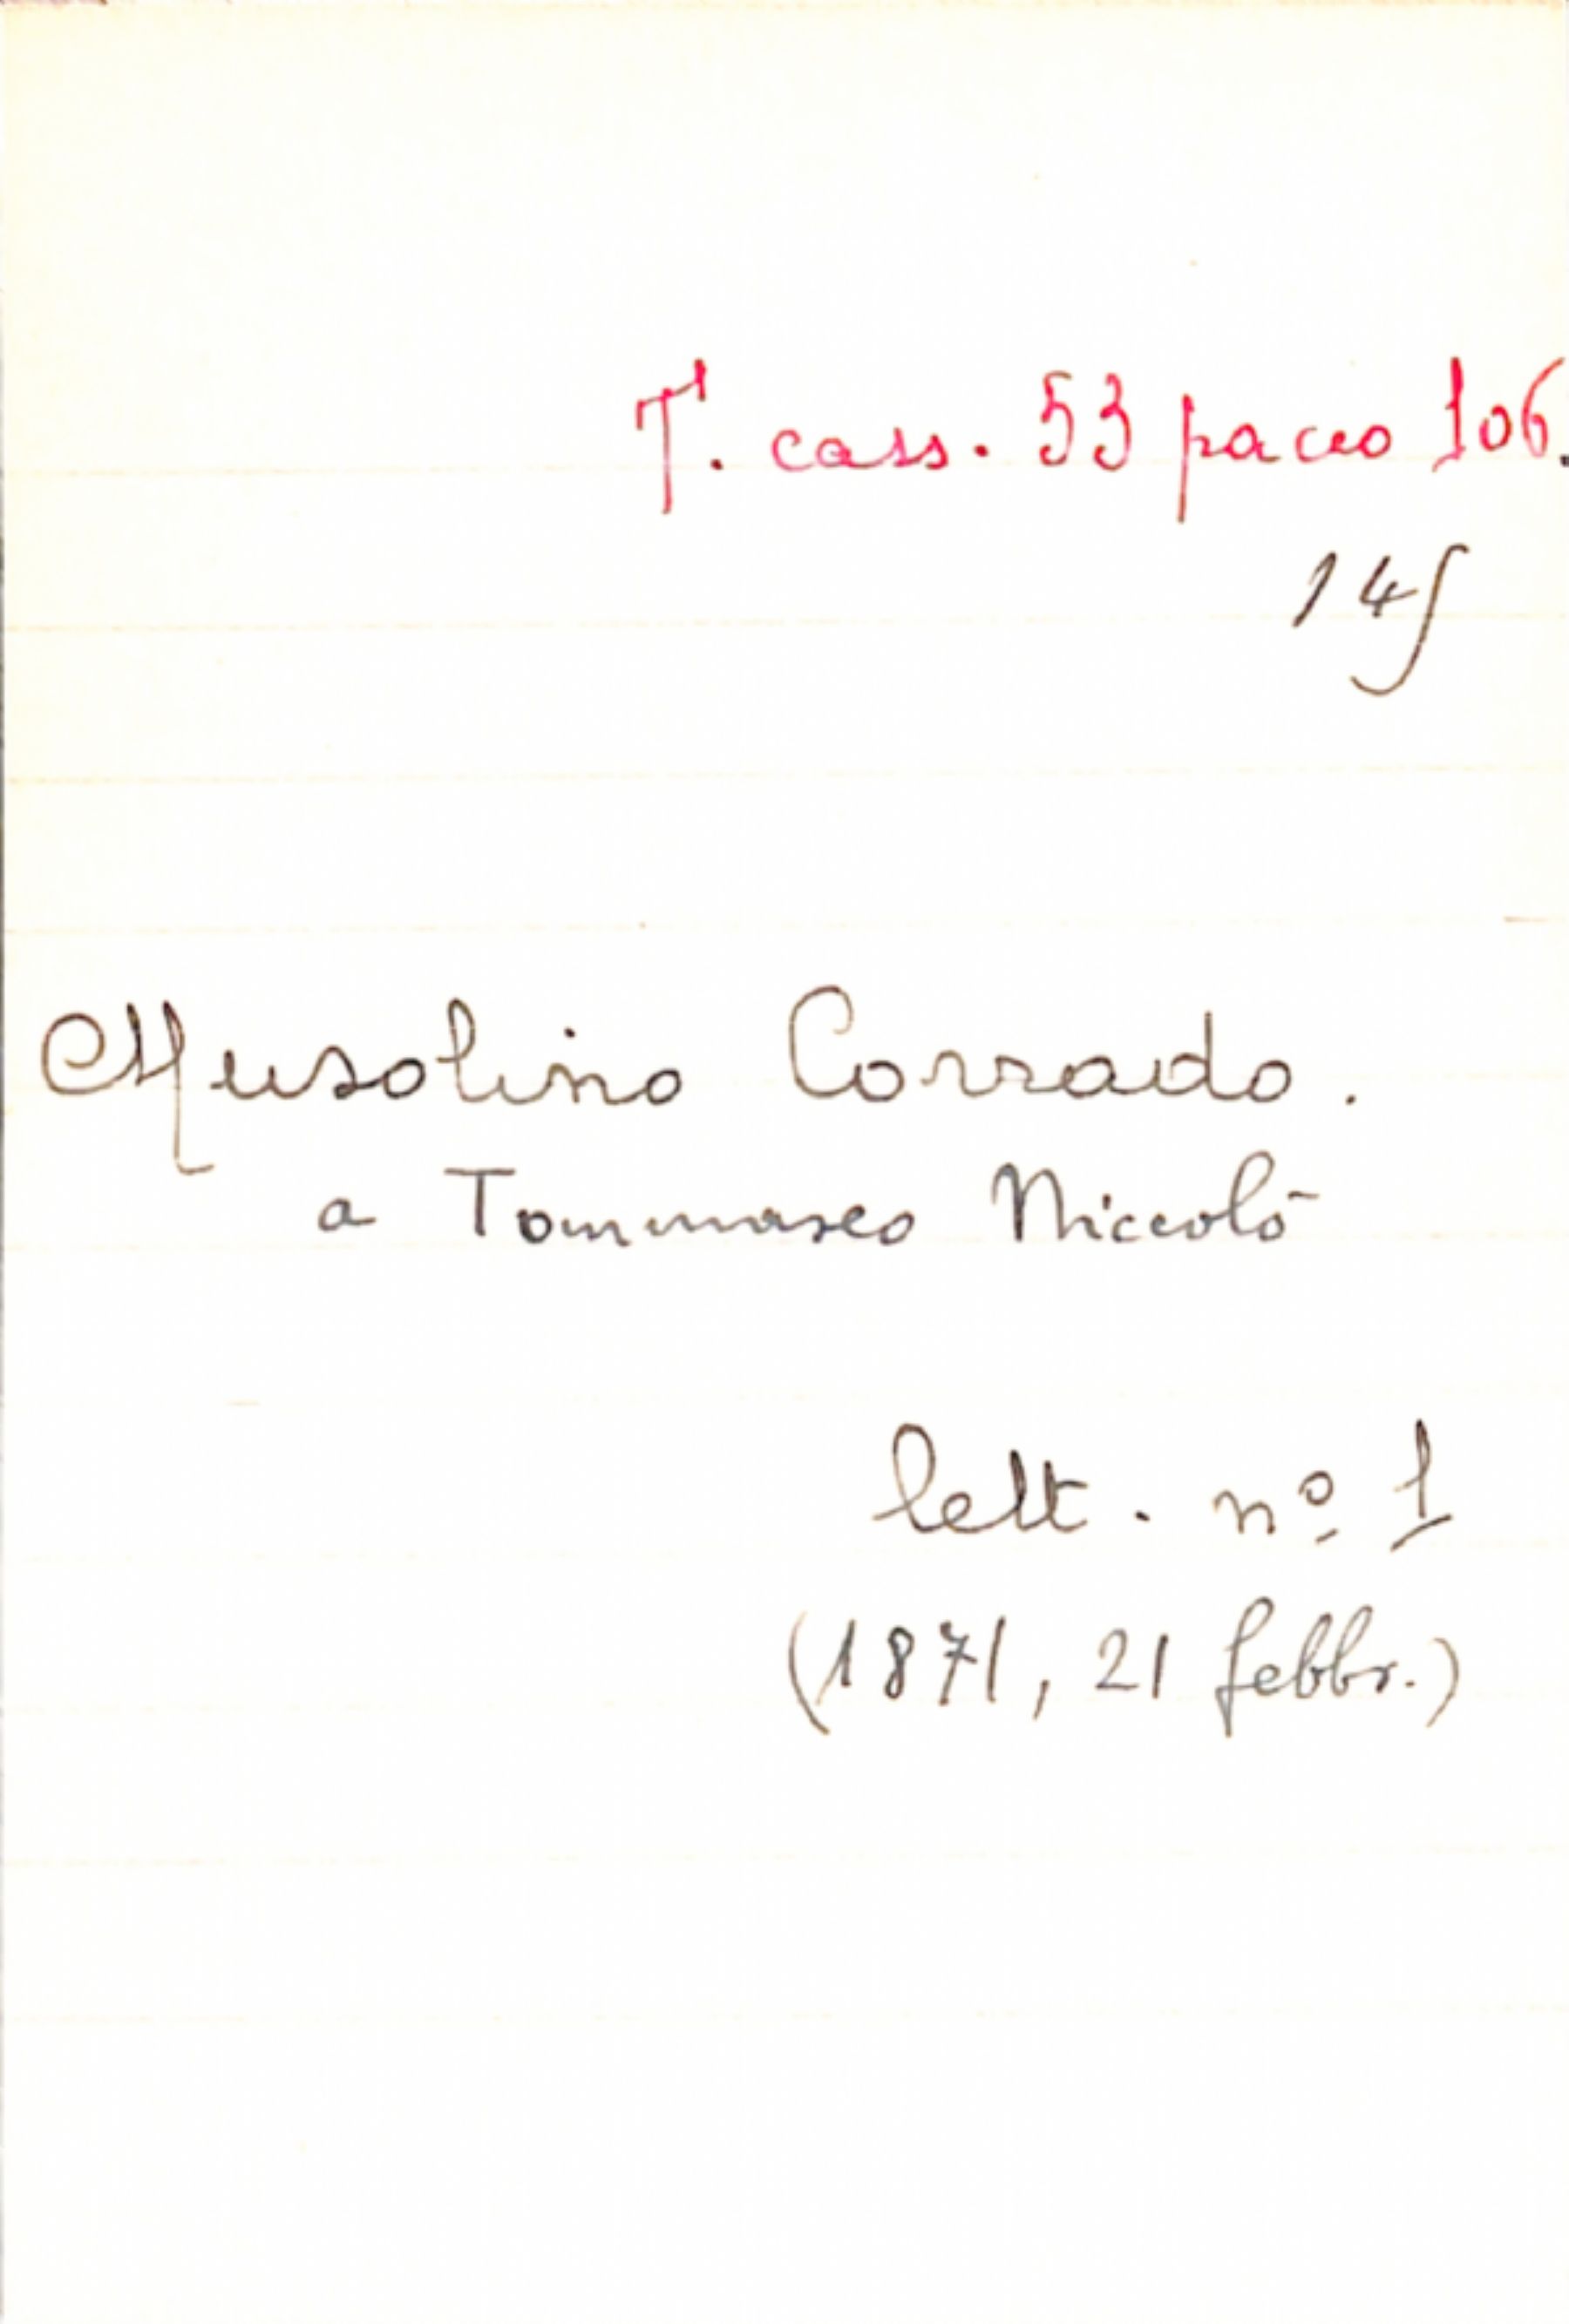 T. cass. 53 pacco 106.
145
Musolino Corrado.
a Tommaseo Niccolò
lett. nº 1
(1871, 21 febbr.)